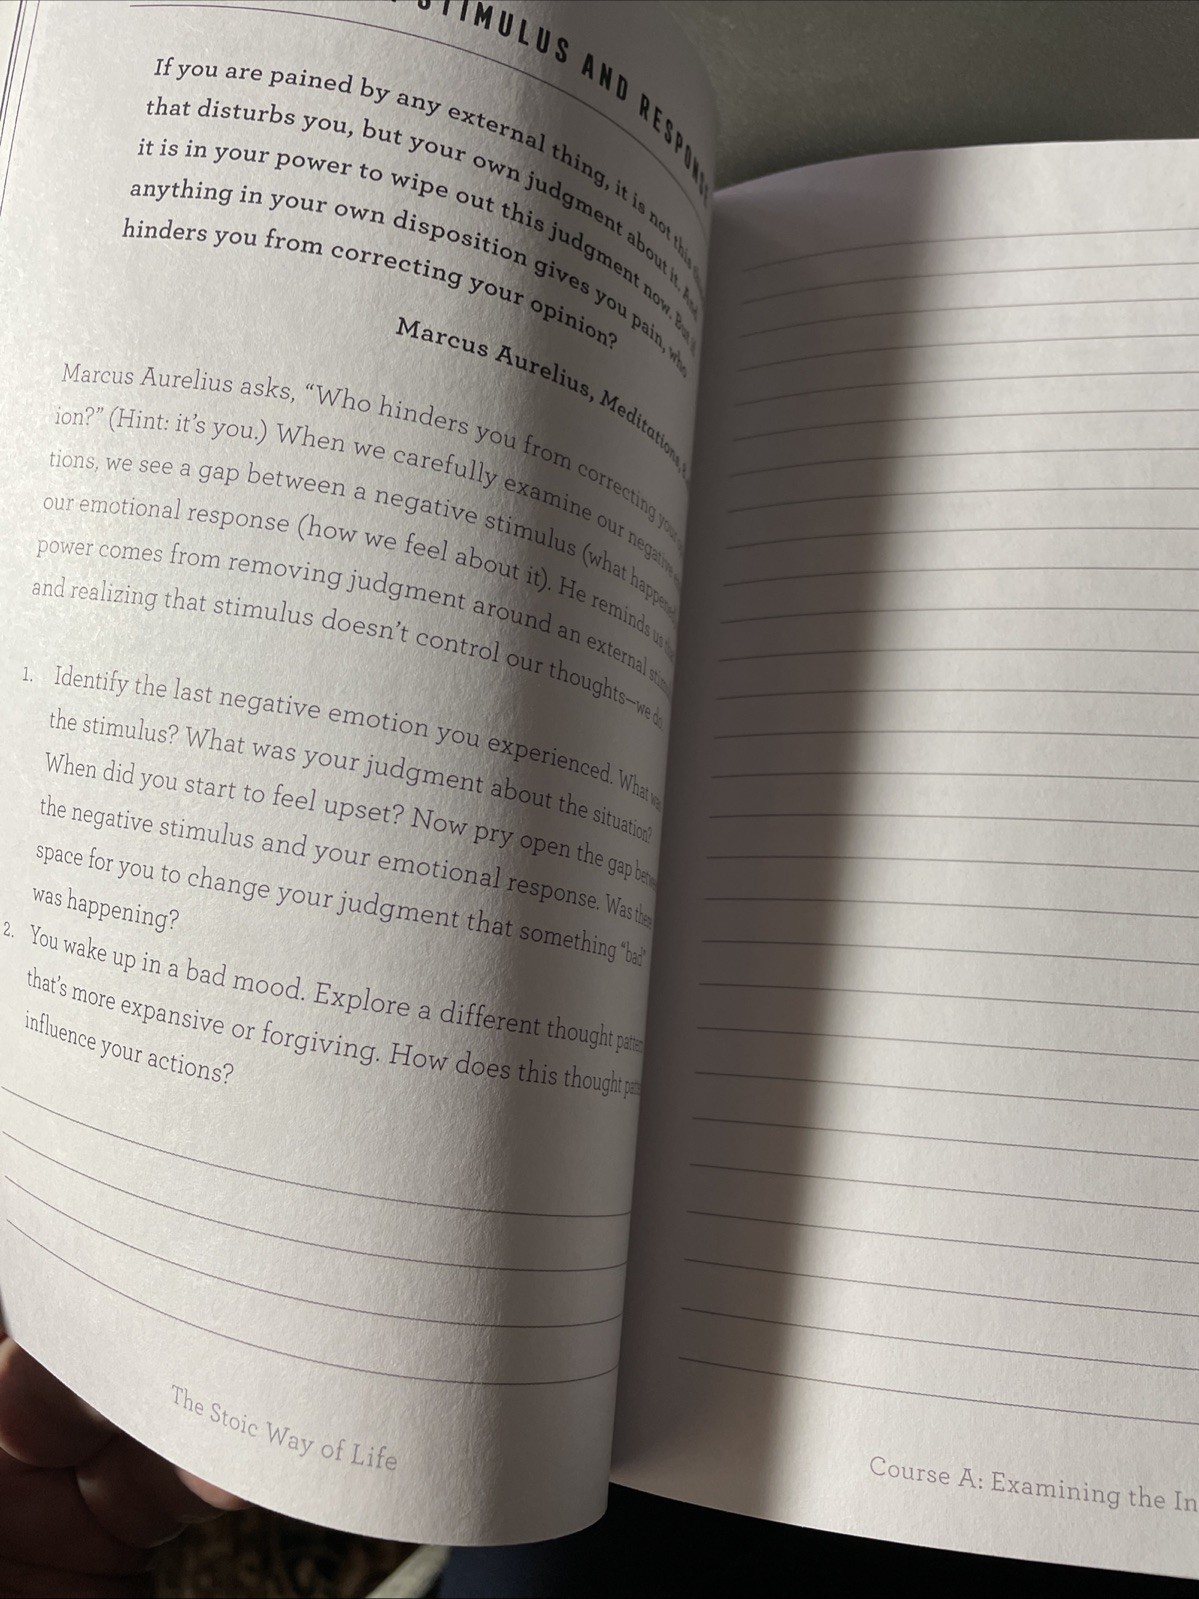 STIMULUS AND RESPONSE
If you are pained by any external thing, it is not this
that disturbs you, but your own judgment about it. And
it is in your power to wipe out this judgment now. But if
anything in your own disposition gives you pain, who
hinders you from correcting your opinion?
Marcus Aurelius, Meditations,
Marcus Aurelius asks, “Who hinders you from correcting your
ion?” (Hint: it’s you.) When we carefully examine our negative
tions, we see a gap between a negative stimulus (what happened)
our emotional response (how we feel about it). He reminds us
power comes from removing judgment around an external
and realizing that stimulus doesn’t control our thoughts—we do.
1. Identify the last negative emotion you experienced. What was
the stimulus? What was your judgment about the situation?
When did you start to feel upset? Now pry open the gap
the negative stimulus and your emotional response. Was there
space for you to change your judgment that something “bad”
was happening?
2. You wake up in a bad mood. Explore a different thought
that’s more expansive or forgiving. How does this thought
influence your actions?
The Stoic Way of Life
Course A: Examining the In